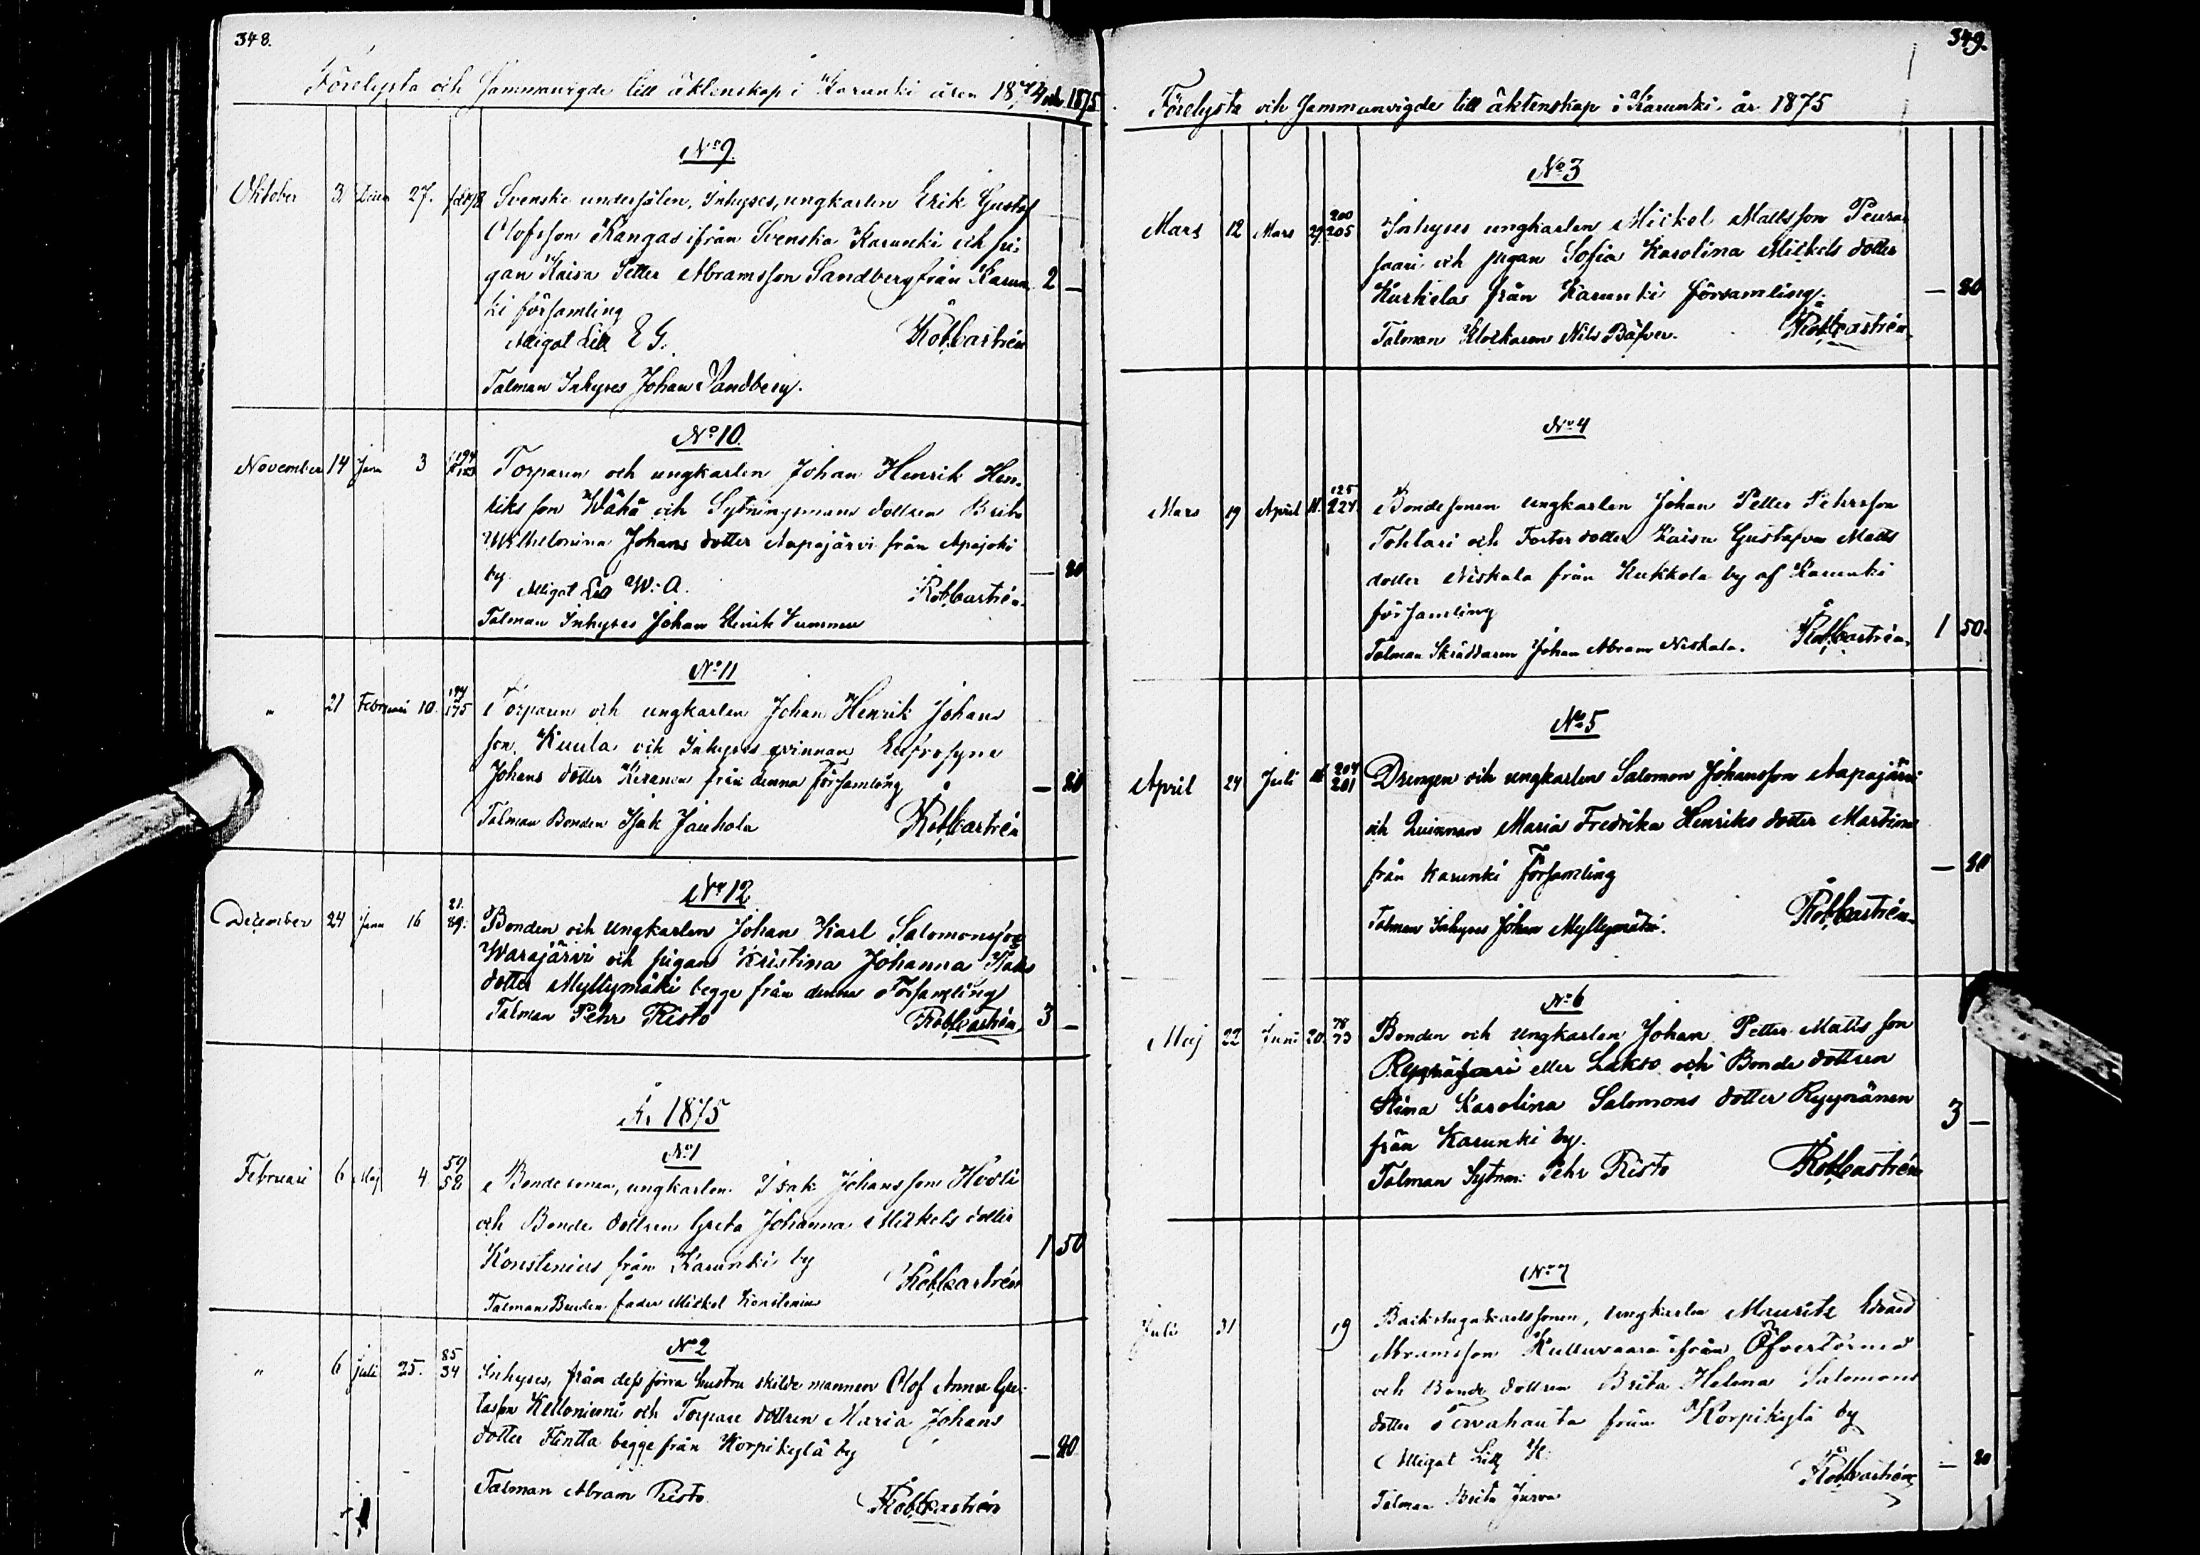 348.
Förelysta och Sammanvigde till äktenskap i Karunki åren 1874 och 1875
No 9.
Oktober 3 27. Svenske undersåten, Inhyses, ungkarlen Erik Gustaf
Olofsson Kangas ifrån Svenska Karunki och pi-
gan Kaisa Petter Abramsson Sandberg från Karun- 2 —
ki församling
Alligat Litt E G. Rob. Castrén
Talman Inhyses Johan Sandberg.
No 10.
November 14 Janu 3 194 Torparen och ungkarlen Johan Henrik Hen-
riksson Wähä och Sytningsmans dottren Brita
Wilhelmina Johans dotter Aapajärvi från Apajoki
by — 80
Alligat Litt W. A. Rob. Castrén
Talman Inhyses Johan Henrik
No 11
" 21 Februari 10. 194 175 Torparen och ungkarlen Johan Henrik Johans
son Kuula och Inhyses qvinnan Eufrosyne
Johans dotter Keranen från denna Församling — 80
Talman Bonden Isak Jauhola Rob. Castrén
No 12
December 24 Janu 16 21. 89. Bonden och Ungkarlen Johan Karl Salomonsson
Warajärvi och pigan Kristina Johanna Isaks
dotter Myllymäki begge från denna Församling
Talman Pehr Risto Rob. Castrén 3 —
År 1875
No 1
Februari 6 Maj 4 59 58 Bondesonen, ungkarlen Isak Johansson Hooli
och Bonde dottren Greta Johanna Mickels dotter
Konstenius från Karunki by 1 50
Talman Brudens fader Mickel Konstenius Rob. Castrén
No 2
" 6 Juli 25. 85 34 Inhyses, från dess förra hustru skilde mannen Olof Anna Gre-
tasson Kelloniemi och Torpare dottren Maria Johans
dotter Flintta begge från Korpikylä by — 80
Talman Abram Risto Rob. Castrén
349.
Förelysta och Sammanvigde till äktenskap i Karunki år 1875
No 3
Mars 12 Mars 29 200 205 Inhyses ungkarlen Mickel Mattsson Peura-
saari och pigan Sofia Karolina Mickels dotter
Kurkela från Karunki församling. — 80
Talman Klockaren Nils Bäfver. Rob. Castrén
No 4
Mars 19 April 11. 125 224. Bondesonen ungkarlen Johan Petter Pehrsson
Tohlari och Foster dotter Kaisa Gustafva Matts
dotter Niskala från Kukkola by af Karunki
församling 1 50.
Talman Skräddaren Johan Abram Niskala. Rob. Castrén
No 5
April 24 Juli 204 201 Drengen och ungkarlen Salomon Johansson Aapajärvi
och Quinnan Maria Fredrika Henriks dotter Martima
från Karunki Församling — 80
Talman Inhyses Johan Myllymäki. Rob. Castrén
No 6
Maj 22 Juni 20. 78 73 Bonden och Ungkarlen Johan Petter Matts son
eller Lakso och Bonde dottren
Stina Karolina Salomons dotter Ryynänen 3 —
från Karunki by.
Talman Sytnm: Pehr Risto Rob. Castrén
No 7
Juli 31 19 Backstugukarlssonen, Ungkarlen Mauritz Edvard
Abramsson Kulluvaara ifrån Öfvertorneå
och Bonde dottren Brita Helena Salomons
dotter Tervahauta från Korpikylä by
Alligat Litt K. — 80
Talman Brita Jurva Rob. Castrén